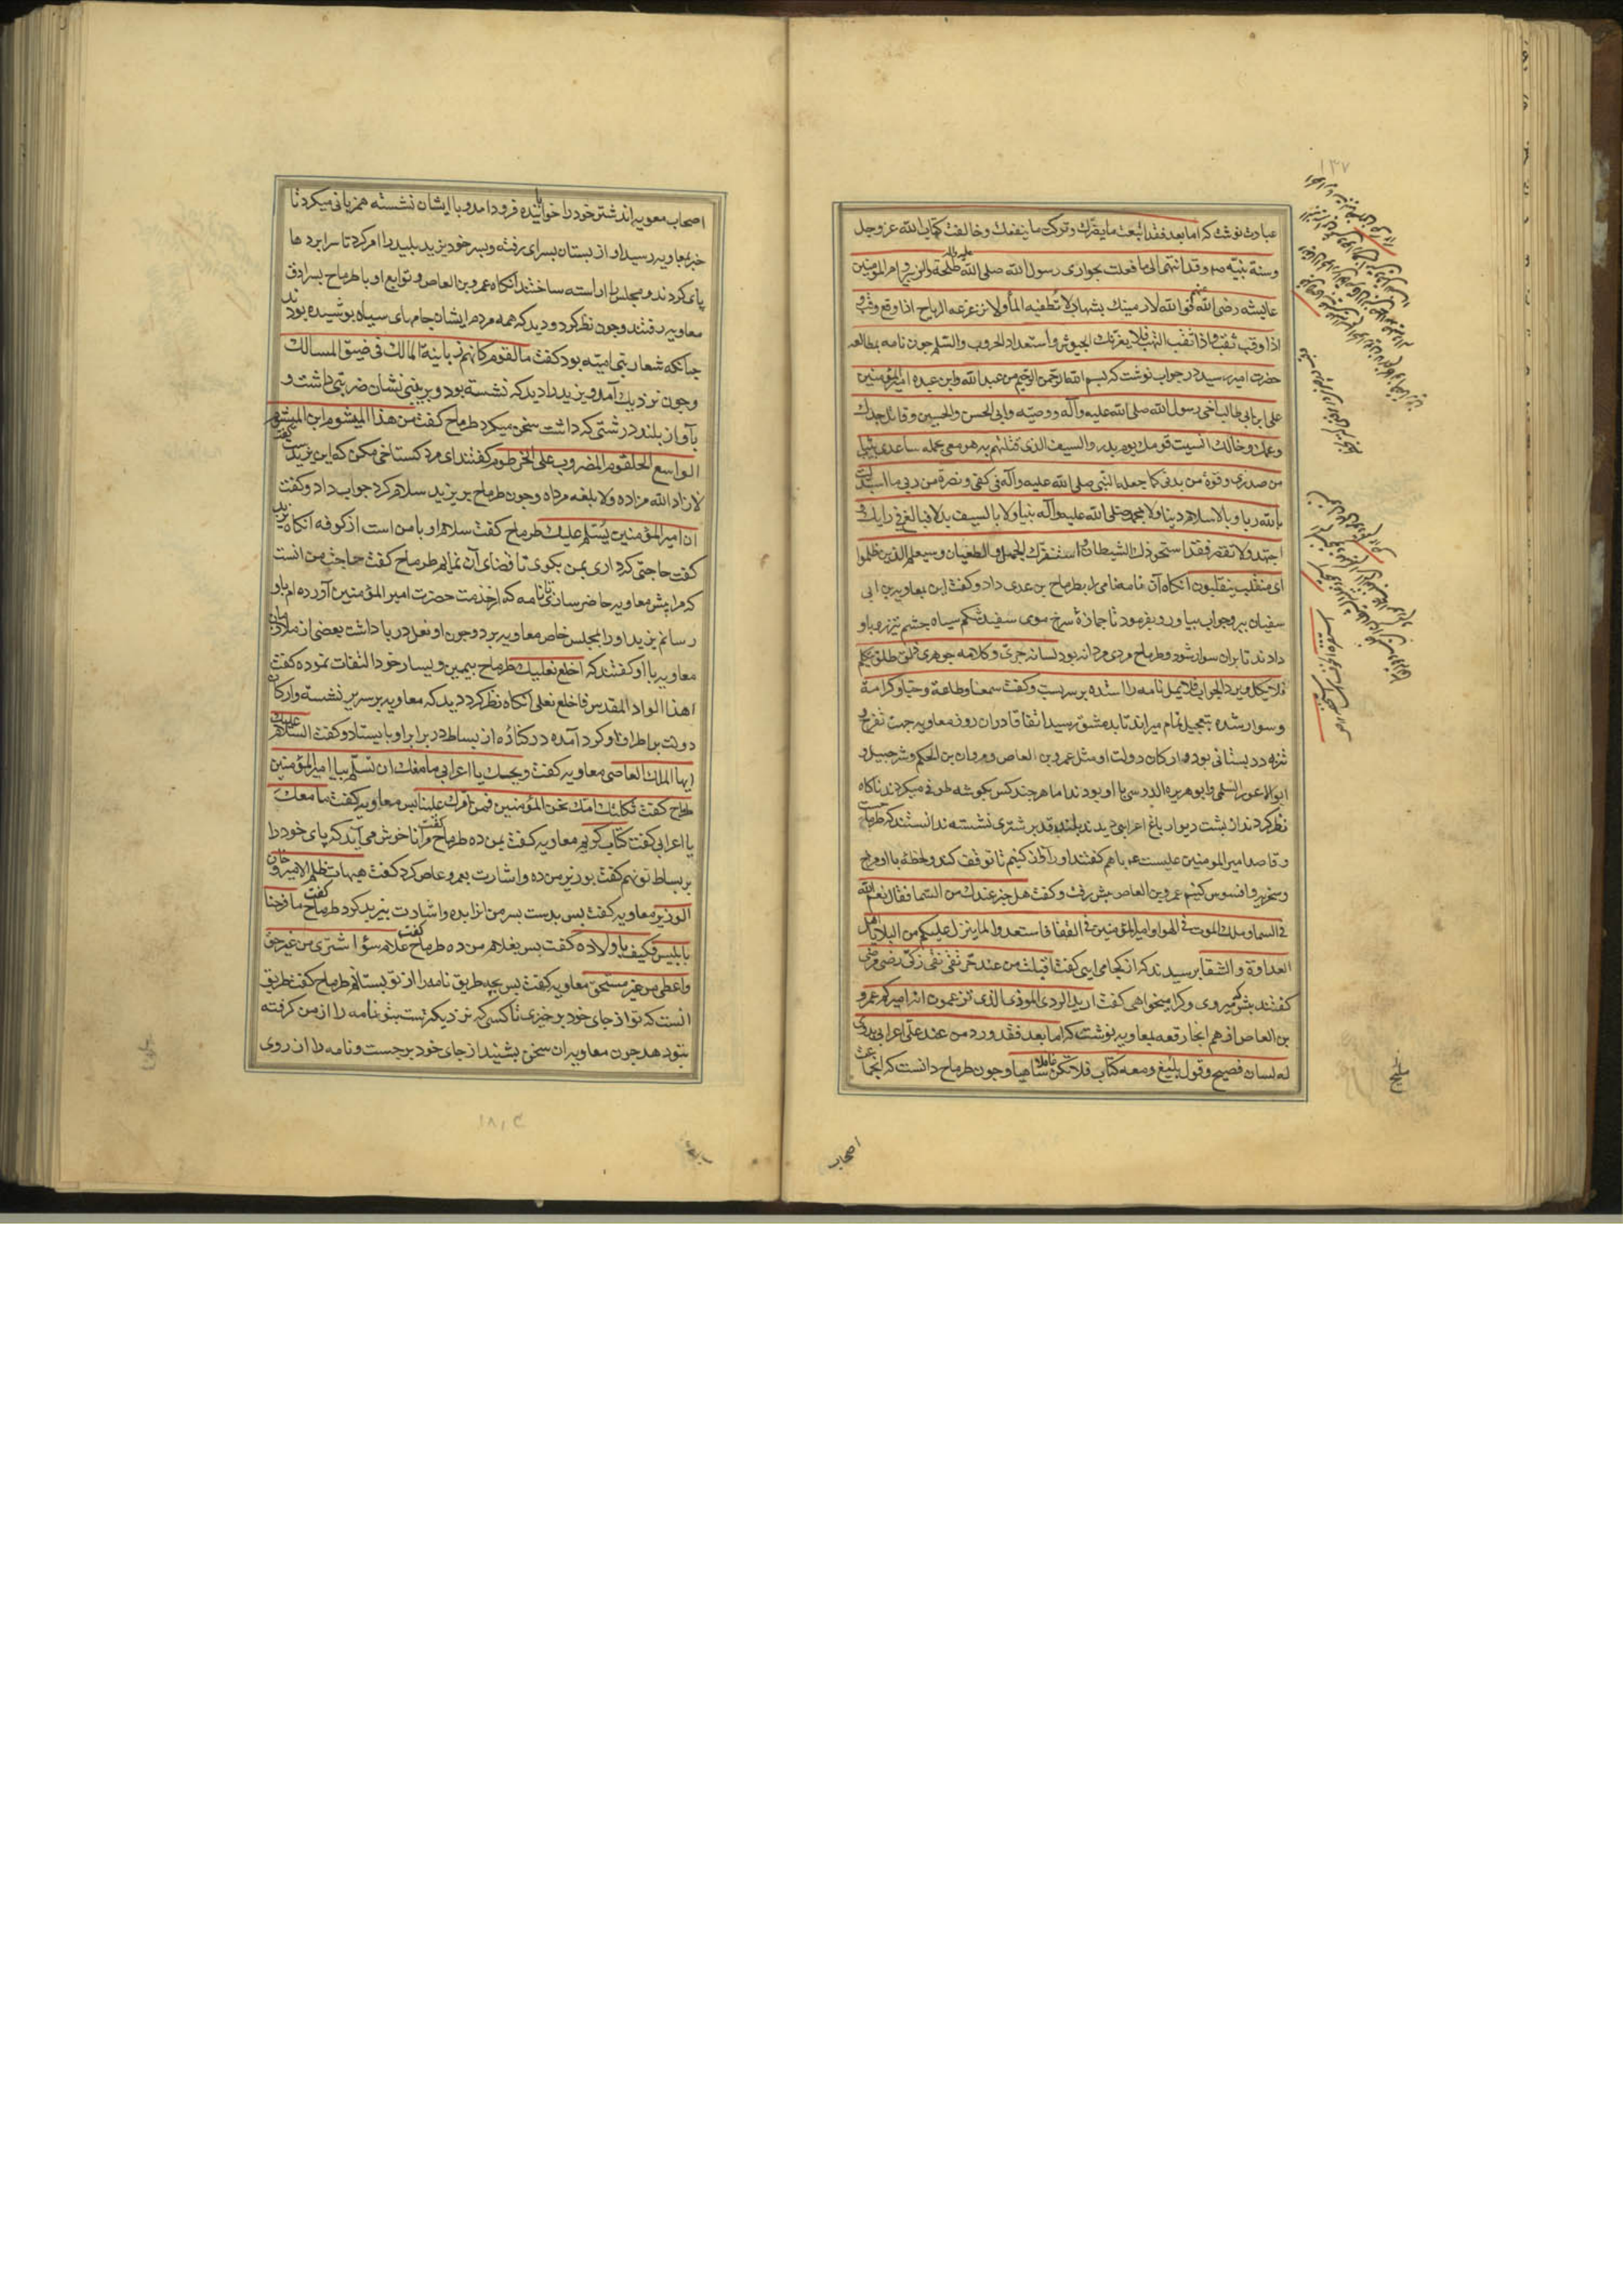 ۱۳۷
عبارت نوشت که اما بعد فقد اتبعت ما یضرّک و ترکت ما ینفعک و خالفت کتاب الله عز و جل
و سنة نبیّه و قد انتهی الی ما فعلت بحواری رسول الله صلی الله علیه و آله طلحة و الزبیر و ام المؤمنین
عایشه رضی الله عنهم فو الله لارمینک بشهاب لا تطفیه الماء و لا تزعزعه الریاح اذا وقع وقب
اذا وقب ثقب و اذا ثقب التهب فلا یغرنک الجیوش و استعداد الحروب و السلم جون نامه بمطالعه
حضرت امیر رسید در جواب نوشت که بسم الله الرحمن الرحیم من عبد الله و ابن عبده امیر المؤمنین
علی ابن ابی طالب اخی رسول الله صلی الله علیه و آله و وصیّه و ابی الحسن و الحسین و قاتل جدک
و عمک و خالک انسیت قومک یوم بدر و السیف الذی قتلتهم به هو معی یحمله ساعدی بثبات
من صدری و قوة من بدنی کما جعله النبی صلی الله علیه و آله فی کفی و نصرة من ربی ما استبدلت
بالله ربا و بالاسلام دینا و لا بمحمد صلی الله علیه و آله نبیا و لا بالسیف بدلا فبالغ فی رایک و
اجتهد و لا تقصر فقد استحوذ لک الشیطان و استنفرک الجهل و الطغیان و سیعلم الذین ظلموا
ای منقلب ینقلبون آنکاه آن نامه نامی را بطرماح بن عدی داد و کفت این بمعاویه بن ابی
سفیان ببر و جواب بیاور و بفرمود تا جمازهٔ سرخ موی سفید شکم سیاه چشم تیزرو باو
دادند تا بران سوار شود و طرماح مردی مردانه بود لسانه جری و کلامه جوهری ذلق طلق یتکلم
فلا یکل و یرد الجواب فلا یمل نامه را استده بر سر بست و کفت سمعا و طاعة و حبا و کرامة
و سوار شده بتعجیل تمام میراند تا بدمشق رسید اتفاقا دران روز معاویه جهت تفرج و
تنزه در بستانی بود و ارکان دولت او مثل عمرو بن العاص و مروان بن الحکم و شرحبیل و
ابو الاعور السلمی و ابو هریره الدوسی با او بودند اما هر چند کس بکوشه طوفی میکردند ناکاه
نظر کردند از پشت دیوار باغ اعرابی دیدند بلند قد بر شتری نشسته ندانستند که طرماح
و قاصد امیر المومنین علیست ع باهم کفتند او را آواز کنیم تا توقف کند و لحظهٔ با او مزاح
و سخریه و افسوس کنیم عمرو بن العاص پیش رفت و کفت هل خبر عندک من السما فقال نعم الله
فی السما و ملک الموت فی الهوا و امیر المؤمنین فی القفا فاستعدوا لما ینزل علیکم من البلا یا اهل
العداوة و الشقا پرسیدند که از کجا می ایی کفت اقبلت من عند حرّ تقی نقی زکی رضی مرضی
کفتند بشو که میروی و کرا میخواهی کفت ارید الردی الموذی الذی تزعمون انه امیرکم عمرو
بن العاص از هم انجا رقعه بمعاویه نوشت که اما بعد فقد ورد من عند علی اعرابی بدوی
له لسان فصیح و قول بلیغ و معه کتاب فلا تکن غافلا ساهیا و چون طرماح دانست که انجماعت
اصحاب
اصحاب معویه اند شتر خود را خوابانیده فرود امد و با ایشان نشسته همزبانی میکرد تا
خبر بمعاویه رسید او از بستان بسرای رفته و پسر خود یزید پلید را امر کرد تا سرا پردها
پای کردند و مجلس را اراسته ساختند انکاه عمرو بن العاص و توابع او با طرماح بسرادق
معاویه رفتند و چون نظر کرد و دید که همه مردم ایشان جامهای سیاه پوشیده بودند
جنانکه شعار بنی امیّه بود کفت ما لقوم کانهم زبانیة المالک فی ضیق المسالک
و چون نزدیک آمد و یزید را دید که نشسته بود و بر بینی نشان ضربتی داشت و
بآواز بلند درشتی که داشت سخن میکرد طرماح کفت من هذا المیشوم ابن المیشوم
الواسع الحلقوم المضروب علی الخرطوم کفتند ای مرد کستاخی مکن که این یزیدست کفت
لا زاد الله مزاده و لا بلغه مراده و چون طرماح بر یزید سلام کرد جواب داد و کفت
ان امیر المؤمنین یسلم علیک طرماح کفت سلام او با من است از کوفه انکاه یزید
کفت حاجتی که داری بمن بکوی تا قضای آن نمایم طرماح کفت حاجت من انست
که مرا پیش معاویه حاضر سازی تا نامه که از خدمت حضرت امیر المؤمنین آورده ام باو
رسانم یزید او را بمجلس خاص معاویه برد و چون او نعل در پا داشت بعضی از ملازمان
معاویه با او کفتند که اخلع نعلیک طرماح بیمین و یسار خود التفات نموده کفت
اهذا الواد المقدس فاخلع نعلی انکاه نظر کرد دید که معاویه بر سریر نشسته و ارکان
دولت بر اطراف او کرد آمده در کنارهٔ از بساط در برابر او بایستاد و کفت السلام علیک
ایها الملک العاصی معاویه کفت ویحک یا اعرابی ما منعک ان تسلم بیا امیر المؤمنین
طرماح کفت ثکلتک امک نحن المؤمنین فمن امّرک علینا پس معاویه کفت ما معک
یا اعرابی کفت کتاب کریم معاویه کفت بمن ده طرماح کفت مرا ناخوش می آید که پای خود را
بر بساط تو نهم کفت بوزیر من ده و اشارت بعمرو عاص کرد کفت هیهات ظلم الامیر و خان
الوزیر معاویه کفت پس بدست پسر من یزید ده و اشارت بیزید کرد طرماح کفت ما فرحنا
بابلیس فکیف باولاده کفت پس بغلام من ده طرماح کفت غلام سوء اشتری من غیر حق
و اعطی من غیر مستحق معاویه کفت پس بچه طریق نامه را از تو بستانم طرماح کفت طریق
انست که تو از جای خود برخیزی تا کسی که نزدیکترست بتو نامه را از من کرفته
بتو دهد چون معاویه ان سخن بشنید از جای خود برجست و نامه را از روی